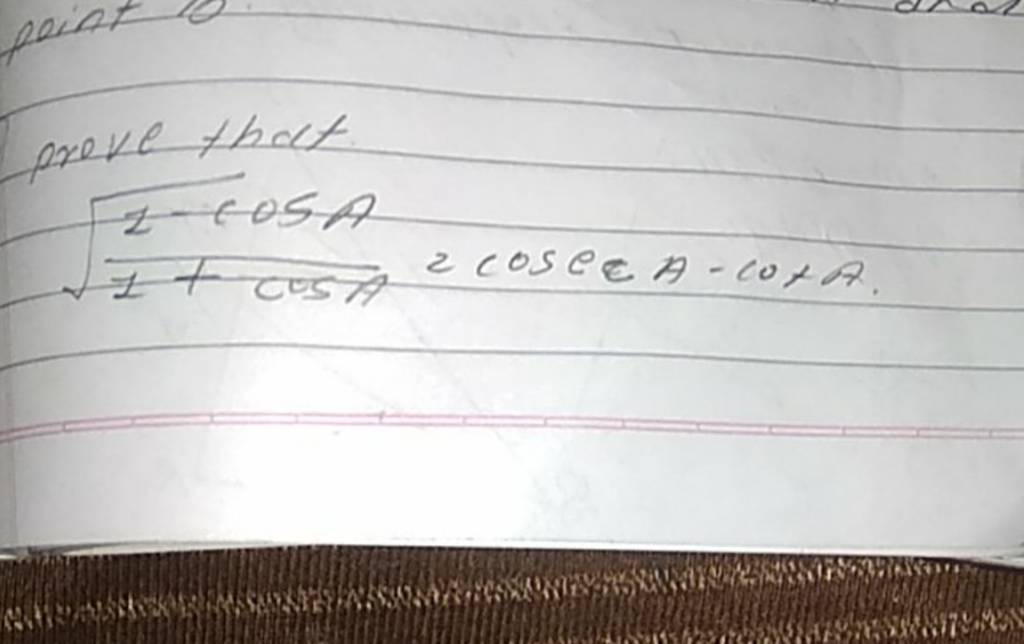 point O.
prove that.
√(1 - cosA
1 + cosA) = cosec A - cot A.